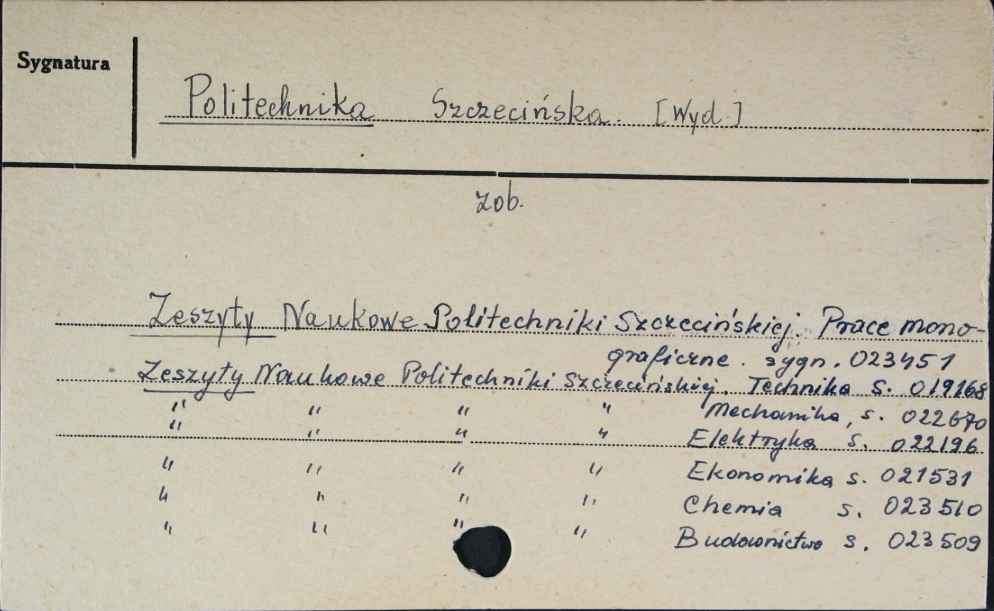 Sygnatura
Politechnika Szczecińska. [Wyd.]
zob.
Zeszyty Naukowe Politechniki Szczecińskiej. Prace mono-
graficzne. sygn. 023451
Zeszyty Naukowe Politechniki Szczecińskiej. Technika s. 019168
" " " " Mechanika, s. 022670
" " " " Elektryka s. 022196
" " " " Ekonomika s. 021531
" " " " Chemia s. 023510
" " " " Budownictwo s. 023509